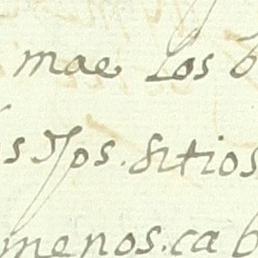 mae los b
s Jos. sitios
menos. ca b